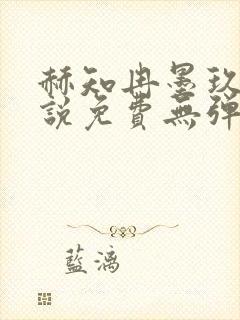 赫知冉墨玖
說免費無彈
藍漓